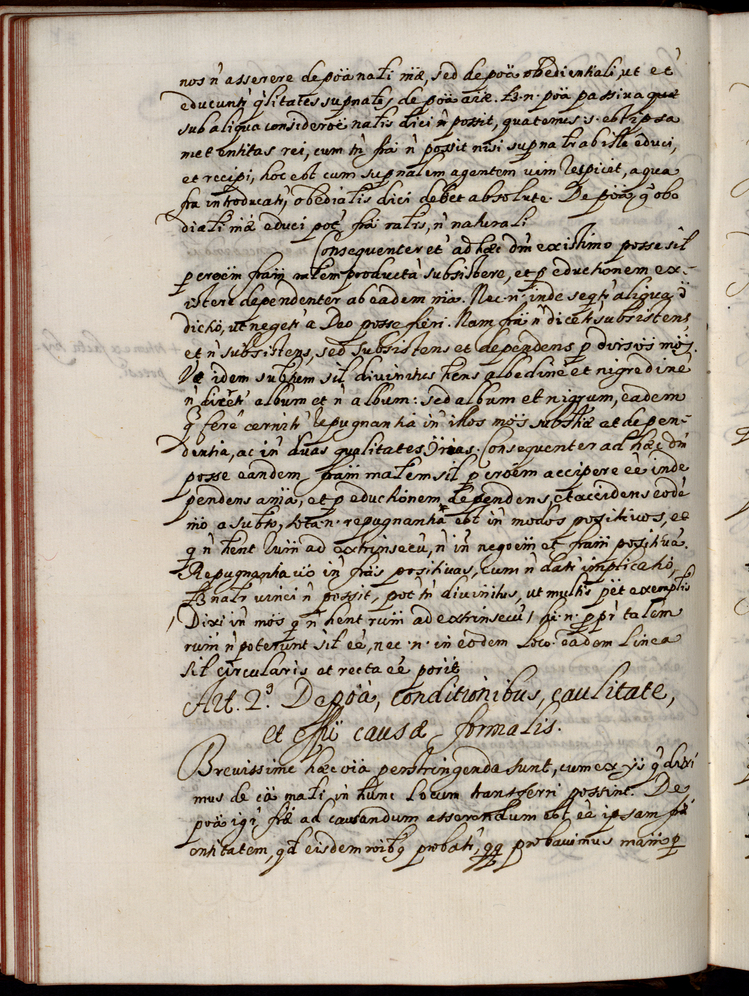 nos ñ asserere de poä nali mæ, sed de poä obedientiali, ut et
educunt qlitates supnales de poä aiæ. n. poä passiva quæ
sub aliqua consideroë nalis dici ñ possit, quatenus .s. est ipsa
met entitas rei, cum tñ fra ñ possit nisi supnalr ab illo educi,
et recipi, hoc est cum supnalem agentem vim respicit, a qua
fra introducatr, obedialis dici debet absolute. De poä gº obe
diali mæ educi pot fra nalis, ñ naturali
Consequenter et ad hæc dm existimo posse sil
p creoem fram nalem producta subsistere, et p eductionem ex-
istere dependenter ab eadem mä. Nec n. inde seqr aliqua
dictio, ut neget a Deo posse fieri. Nam fra ñ dicet subsistens
et ñ subsistens, sed subsistens et dependens p diversos mos.
idem subtum sil divinitus hens albedine et nigredine
ñ dicet album et ñ album: sed album et nigrum, eadem
fere cernitr repugnantia in illos mos substæ at depen-
dentia, ac in duas qualitates. Consequenter ad hæc dm
posse eandem fram nalem sil p creoem accipere ee inde
pendens a mä, et p eductionem dependens, et accidens eode
mo a subto, tota n. repugnantia est in modos positivos, et
q ñ hent rum ad extrinsecu, ñ in negoem et fram positiva.
Repugnantia vo in fras positivas, cum ñ datr implicatio,
nalr vinci ñ possit, pot tñ divinitus, ut multis pet exemplis
(Dixi in mos q ñ hent rum ad extrinsecu) ni n. ppr talem
rum ñ poterunt sil ee, nec .n. in eodem loco eadem linea
sil circularis et recta ee poit
Art. 2º. De poä, conditionibus, caulitate,
et effu causæ formalis.
Brevissime hæc oiä perstringenda sunt, cum ex ijs q dixi
mus de cä mali in hunc locum transferri possint. De
poä igr fræ ad causandum asserendum est ee ipsam fræ
entitatem, qd eisdem roibs probatr, qq probavimus mam p